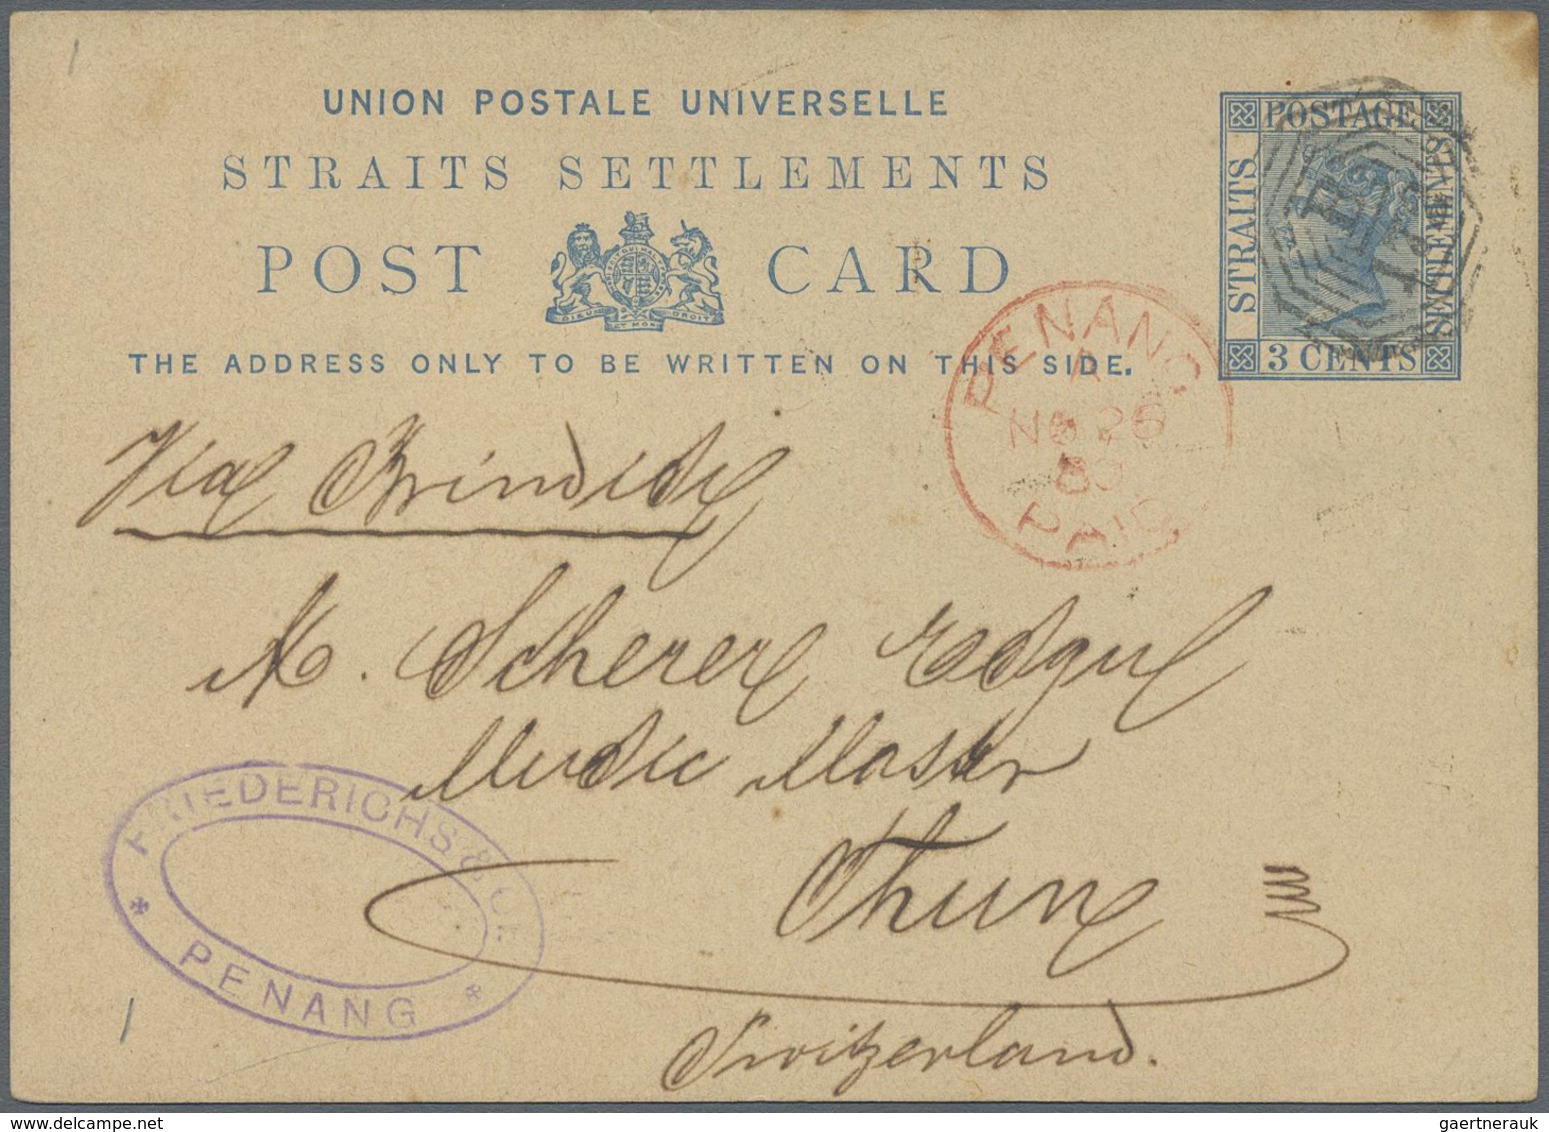 UNION POSTALE UNIVERSELLE
STRAITS SETTLEMENTS
POST CARD
DIEU ET MON DROIT
THE ADDRESS ONLY TO BE WRITTEN ON THIS SIDE.
POSTAGE
STRAITS
SETTLEMENTS
3 CENTS
B
172
PENANG
A
NO 26
PAID
Via Brindisi
Scherer Esqre
Music Master
Thun
Switzerland.
FRIEDERICHS & Co
PENANG
gaertnerauk